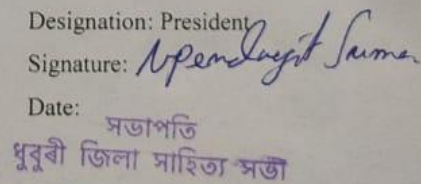 Designation: President
Signature: Upendrajit Sarma
Date:
সভাপতি
ধুবুৰী জিলা সাহিত্য সভা